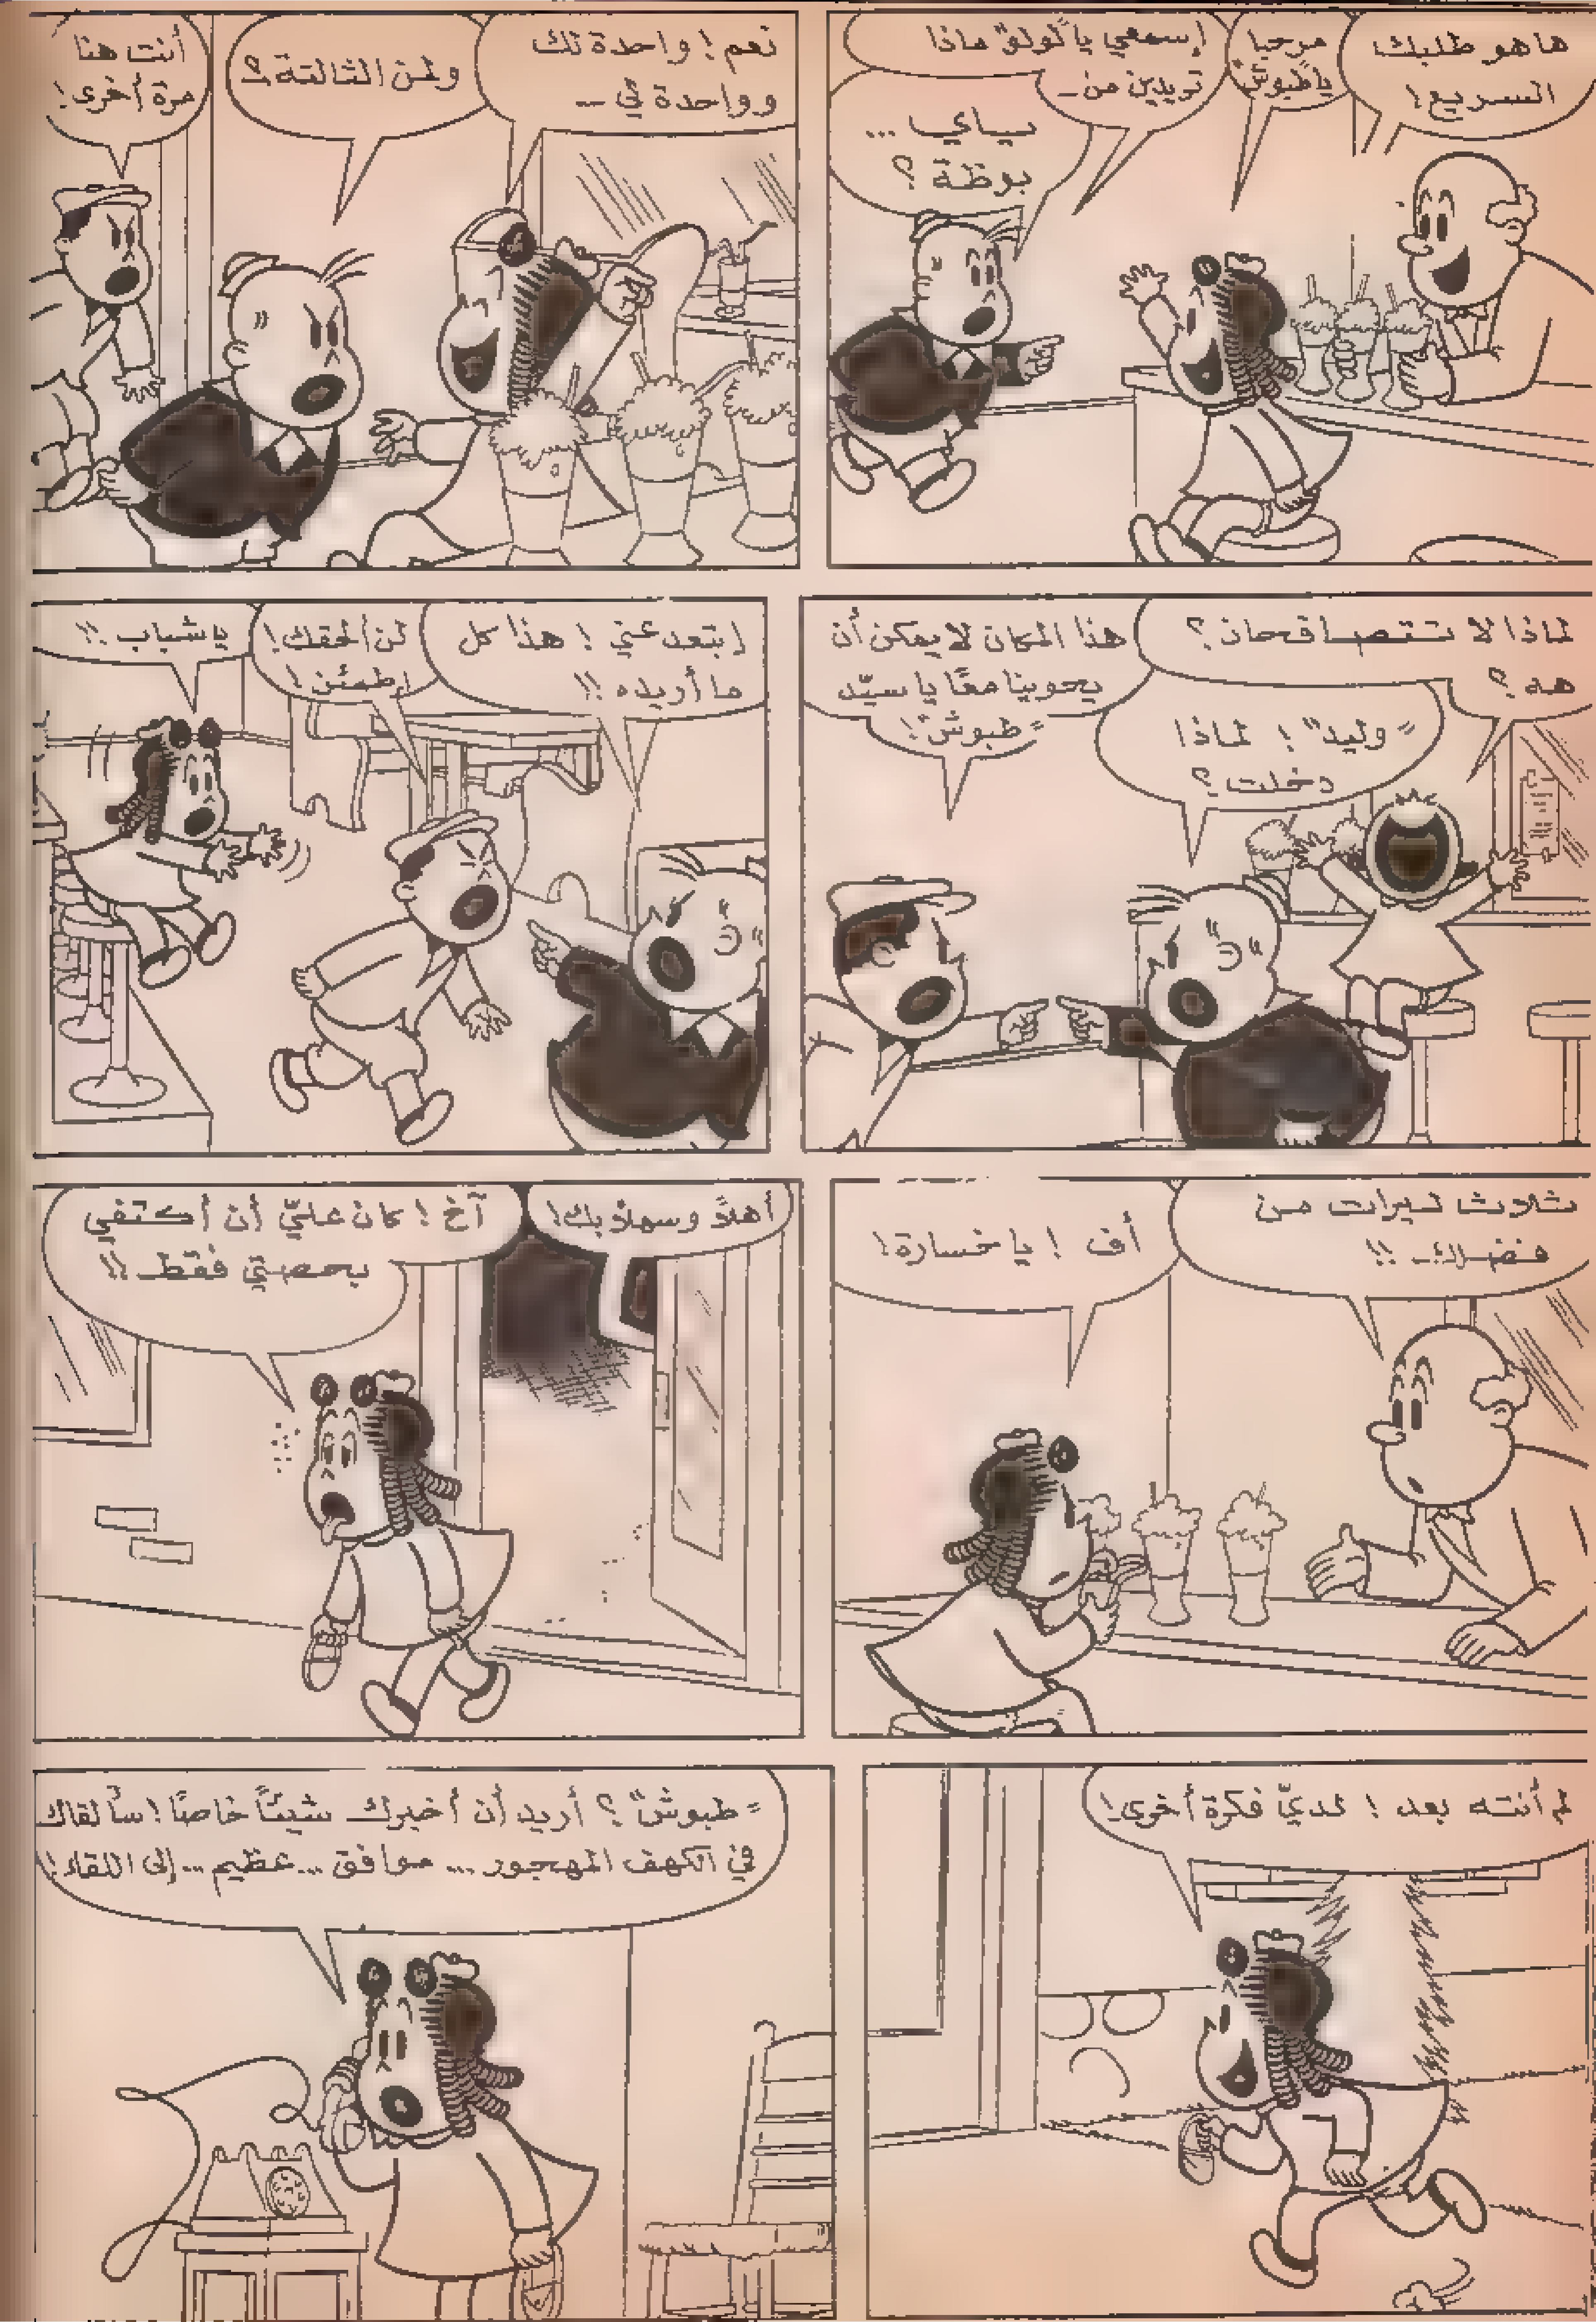 ها هو طلبك
السريع!
مرحبا
يا "طبوش"
إسمعي يا "لولو" ماذا
تريدين من ـ
بياي ...
بوظة ؟
نعم ! واحدة لك
وواحدة لي ...
ولمن الثالثة ؟
أنت هنا
مرة أخرى !
لماذا لا تتصافحان ؟
هه ؟
"وليد" ! لماذا
دخلت ؟
هذا المكان لا يمكن أن
يحوينا معًا يا سيّد
"طبوش" !
إبتعد عني ! هذا كل
ما أريده !!
لن ألحقك !
إطمئن !
يا شباب !!
ثلاث ليرات من
فضلك !!
أف ! يا خسارة !
أهلاً وسهلاً بك !
آخ ! كان عليّ أن أكتفي
بحصتي فقط !!
لم أنته بعد ! لديّ فكرة أخرى !
"طبوش" ؟ أريد أن أخبرك شيئاً خاصًا ! سألقاك
في الكهف المهجور ... موافق ... عظيم ... إلى اللقاء !